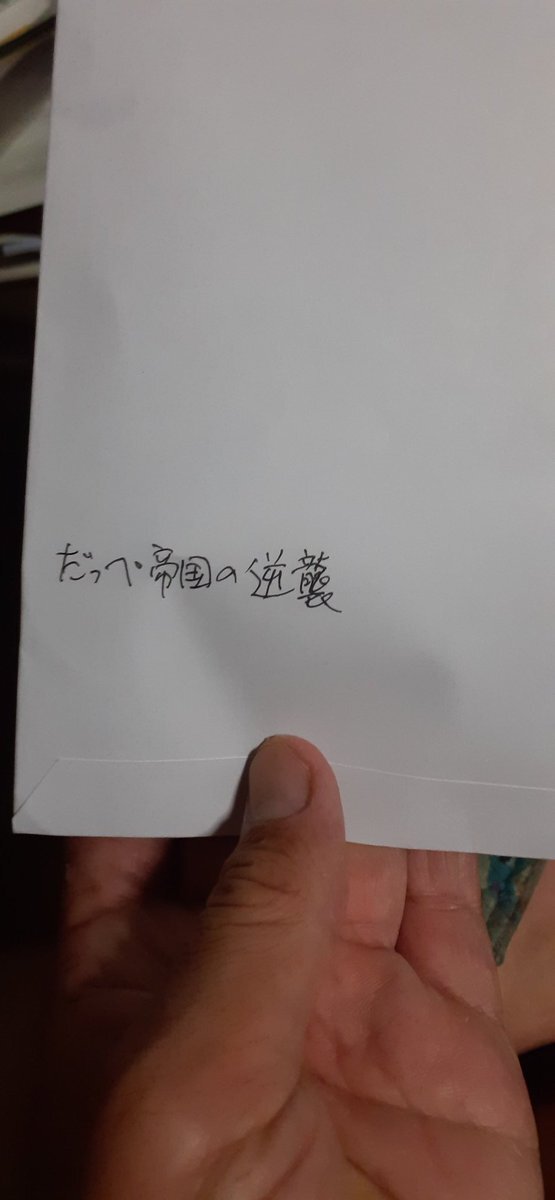 だっぺ帝国の逆襲